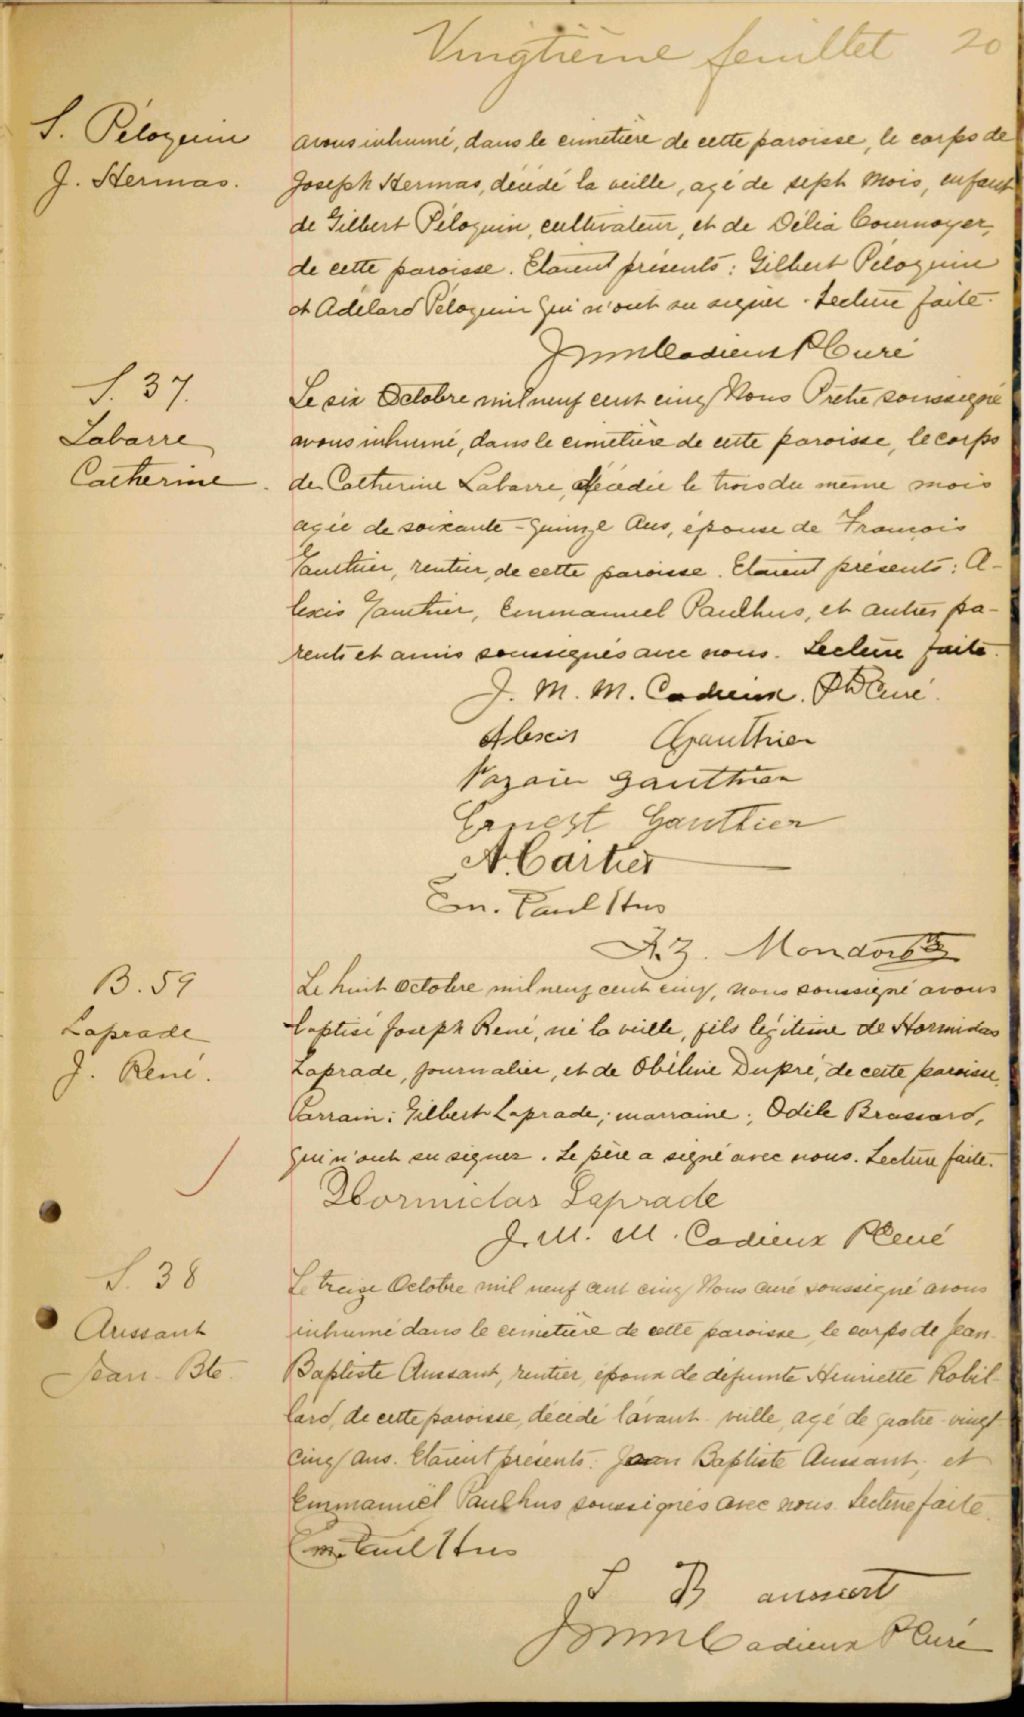 Vingtième feuillet 20
S. Péloquin
J. Hermas.
avons inhumé, dans le cimetière de cette paroisse, le corps de
Joseph Hermas, décédé la veille, agé de sept mois, enfant
de Gilbert Péloquin, cultivateur, et de Délia Cournoyer,
de cette paroisse. Etaient présents: Gilbert Péloquin
et Adélard Péloquin qui n'ont su signer. Lecture faite.
JMMCadieux Ptre Curé
S. 37.
Labarre
Catherine.
Le six Octobre mil neuf cent cinq Nous Prêtre soussigné
avons inhumé, dans le cimetière de cette paroisse, le corps
de Catherine Labarre, décédée le trois du même mois
agée de soixante-quinze ans, épouse de François
Gauthier, rentier, de cette paroisse. Etaient présents: A-
lexis Gauthier, Emmanuel Paulhus, et autres pa-
rents et amis soussignés avec nous. Lecture faite.
J. M. M. Cadieux. Ptre Curé.
Alexis Gauthier
Nazaire Gauthier
Ernest Gauthier
A. Cartier
Em. Paul Hus
F. Z. Mondor Ptre
B. 59
Laprade
J. René.
Le huit Octobre mil neuf cent cinq, nous soussigné avons
baptisé Joseph René, né la veille, fils légitime de Hormidas
Laprade, journalier, et de Obéline Dupré, de cette paroisse.
Parrain: Gilbert Laprade; marraine; Odile Brassard,
qui n'ont su signer. Le père a signé avec nous. Lecture faite.
Hormidas Laprade
J. M. M. Cadieux Ptre Curé
S. 38
Aussant
Jean-Bte.
Le treize Octobre mil neuf cent cinq Nous curé soussigné avons
inhumé dans le cimetière de cette paroisse, le corps de Jean-
Baptiste Aussant, rentier, époux de défunte Henriette Robil-
lard, de cette paroisse, décédé l'avant-veille, agé de quatre-vingt
cinq ans. Etaient présents: Jean Baptiste Aussant, et
Emmanuël Paulhus soussignés avec nous. Lecture faite.
Em. Paul Hus
J B aussant
JMMCadieux Ptre Curé